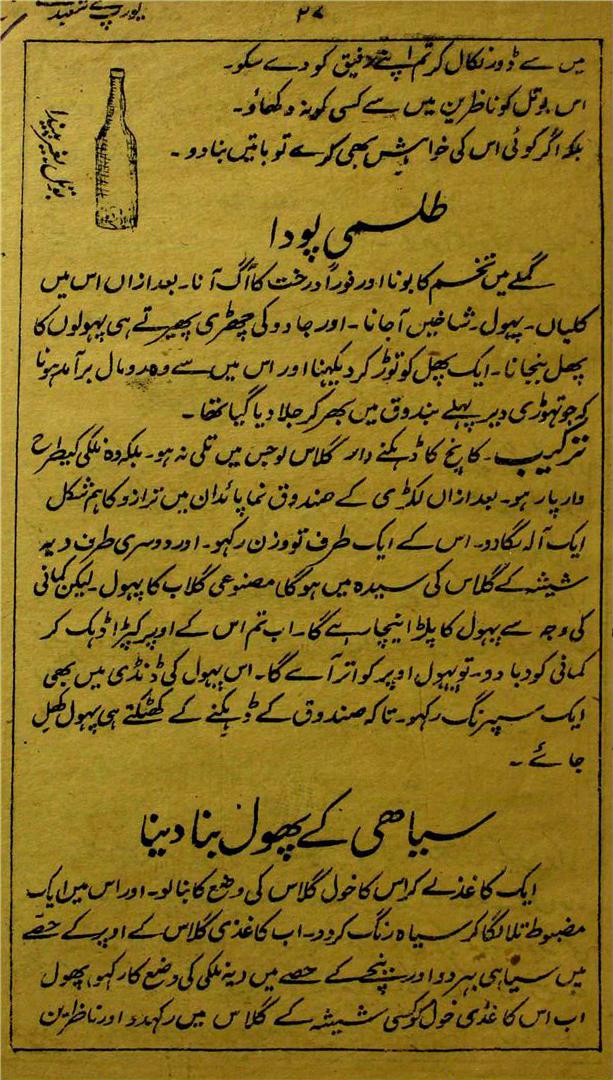 ۲۷
یورپ کے شعبدے
میں سے ڈور نکال کر تم اپنے رفیق کو دے سکو۔
اس بوتل کو ناظرین میں سے کسی کو نہ دکھاؤ۔
بلکہ اگر کوئی اس کی خواہش بھی کرے تو باتیں بنا دو۔
بوتل بغیر پیندا
طلسمی پودا
گملے میں تخم کا بونا اور فوراً درخت کا اُگ آنا۔ بعد ازاں اس میں
کلیاں۔ پہول۔ شاخیں آجانا۔ اور جادو کی چھڑی پھیرتے ہی پہولوں کا
پھل بنجانا۔ ایک پھل کو توڑ کر دیکہنا اور اس میں سے وہ رومال برآمد ہونا
کہ جو تہوڑی دیر پہلے بندوق میں بھر کر جلا دیا گیا تھا۔
ترکیب۔ کانچ کا ڈہکنے دار گلاس لو جس میں تلی نہ ہو۔ بلکہ وہ نلکی کیطرح
وار پار ہو۔ بعد ازاں لکڑی کے صندوق نما پائدان میں ترازو کا ہم شکل
ایک آلہ لگا دو۔ اس کے ایک طرف تو وزن رکہو۔ اور دوسری طرف
شیشہ کے گلاس کی سیدہ میں ہو گا مصنوعی گلاب کا پہول۔ لیکن کمانی
کی وجہ سے پہول کا پلڑا نیچا ہے گا۔ اب تم اس کے اوپر کپڑا ڈہک کر
کمانی کو دبا دو۔ تو پہول اوپر کو اتر آے گا۔ اس پہول کی ڈنڈی میں بھی
ایک سپرنگ رکہو۔ تاکہ صندوق کے ڈہکنے کے کھٹکتے ہی پہول کھل
جائے۔
سیاھی کے پھول بنا دینا
ایک کاغذ لے کر اس کا خول گلاس کی وضع کا بنا لو۔ اور اس میں ایک
مضبوط تلا لگا کر سیاہ رنگ کر دو۔ اب کاغذی گلاس کے اوپر کے حصے
میں سیاہی بہر دو اور نیچے کے حصے میں نلکی کی وضع کا رکہو پھول
اب اس کاغذی خول کو کسی شیشہ کے گلاس میں رکہدو اور ناظرین